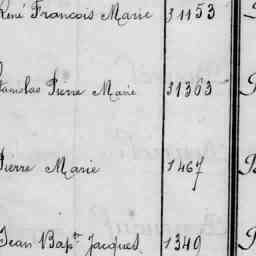 René François Marie 31153
Stanislas Pierre Marie 31363
Pierre Marie 1467
Jean Bapt. Jacques. 1340